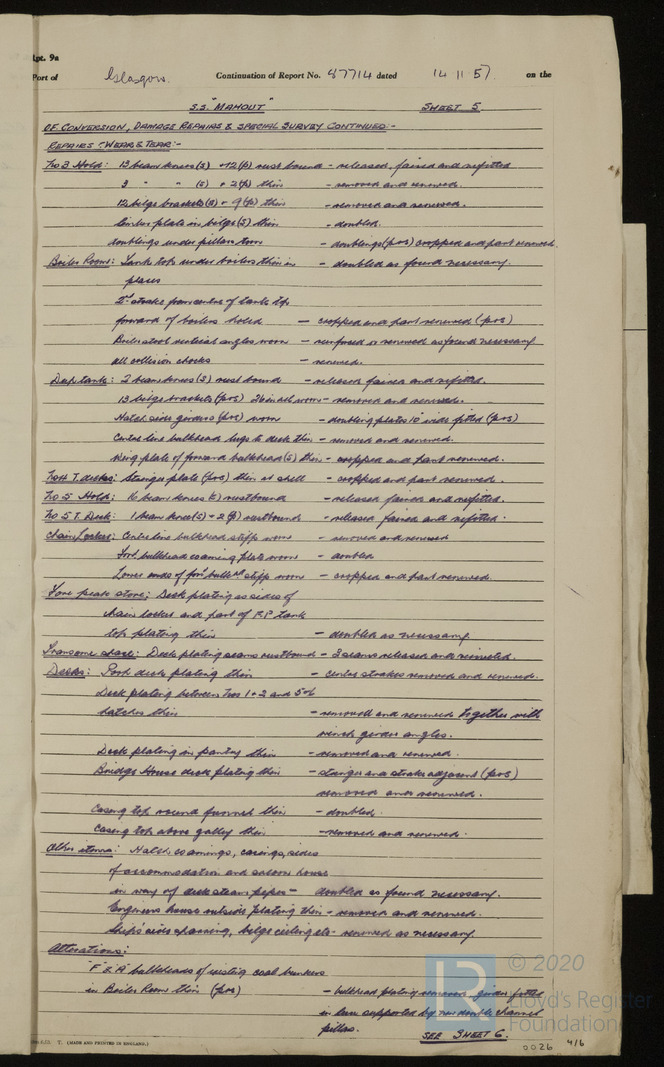 Rpt. 9a
Port of Glasgow. Continuation of Report No. 87714 dated 14 11 57 on the
S.S. "MAHOUT" SHEET 5
OF CONVERSION, DAMAGE REPAIRS & SPECIAL SURVEY CONTINUED:-
REPAIRS "WEAR & TEAR":-
No 3 Hold: 13 beam knees (S) + 12 (p) rust bound - released, faired and refitted
3 " " (S) + 2 (p) thin - removed and renewed.
12 bilge brackets (S) + 9 (p) thin - removed and renewed.
limber plate in bilge (S) thin - doubled.
doublings under pillars torn - doublings (p+s) cropped and part renewed.
Boiler Room: Tank top under boilers thin in - doubled as found necessary.
places
2nd strake from centre of tank top
forward of boilers holed - cropped and part renewed (p+s)
Boiler stool vertical angles worn - reinforced or renewed as found necessary
all collision chocks - renewed.
Deep tank: 2 beam knees (S) rust bound - released faired and refitted.
13 bilge brackets (p+s) 26 in all worn - removed and renewed.
Hatch side girders (p+s) worn - doubling plates 10" wide fitted (p+s)
Centre line bulkhead lugs to deck thin - removed and renewed.
wing plate of forward bulkhead (S) thin - cropped and part renewed.
No 4 T. decks: Stringer plate (p+s) thin at shell - cropped and part renewed.
No 5 Hold: 16 beam knees rustbound - released faired and refitted.
No 5 T. Deck: 1 beam knee (S) + 2 (p) rustbound - released faired and refitted.
Chain Locker: Centre line bulkhead stiffs worn - removed and renewed
Ford bulkhead coaming plate worn - doubled
Lower ends of ford bulkhd stiffs worn - cropped and part renewed.
Fore peak store: Deck plating as sides of
chain locker and part of F.P tank
top plating thin - doubled as necessary
Transome space: Deck plating seams rustbound - 3 seams released and reriveted.
Decks: Poop deck plating thin - centre strakes removed and renewed.
Deck plating between Nos 1 + 2 and 5+6
hatches thin - removed and renewed together with
winch girder angles.
Deck plating in pantry thin - removed and renewed.
Bridge House deck plating thin - stringer and strake adjacent (p+s)
removed and renewed.
Casing top round funnel thin - doubled.
Casing top above galley thin - removed and renewed.
Other items: Hatch coamings, casings, sides
of accommodation and saloon house
in way of deck steam pipes - doubled as found necessary.
Engineers house outside plating thin - removed and renewed.
Ships' sides sparring, bilge ceiling etc - renewed as necessary.
Alterations:
"F & A" bulkheads of existing coal bunkers
in Boiler Room thin (p+s) - bulkhead plating removed, girder fitted
in lieu supported by two double channel
pillars.
SEE SHEET 6.
T. (MADE AND PRINTED IN ENGLAND.)
LR © 2020
Lloyd's Register
Foundation
0026 4/6